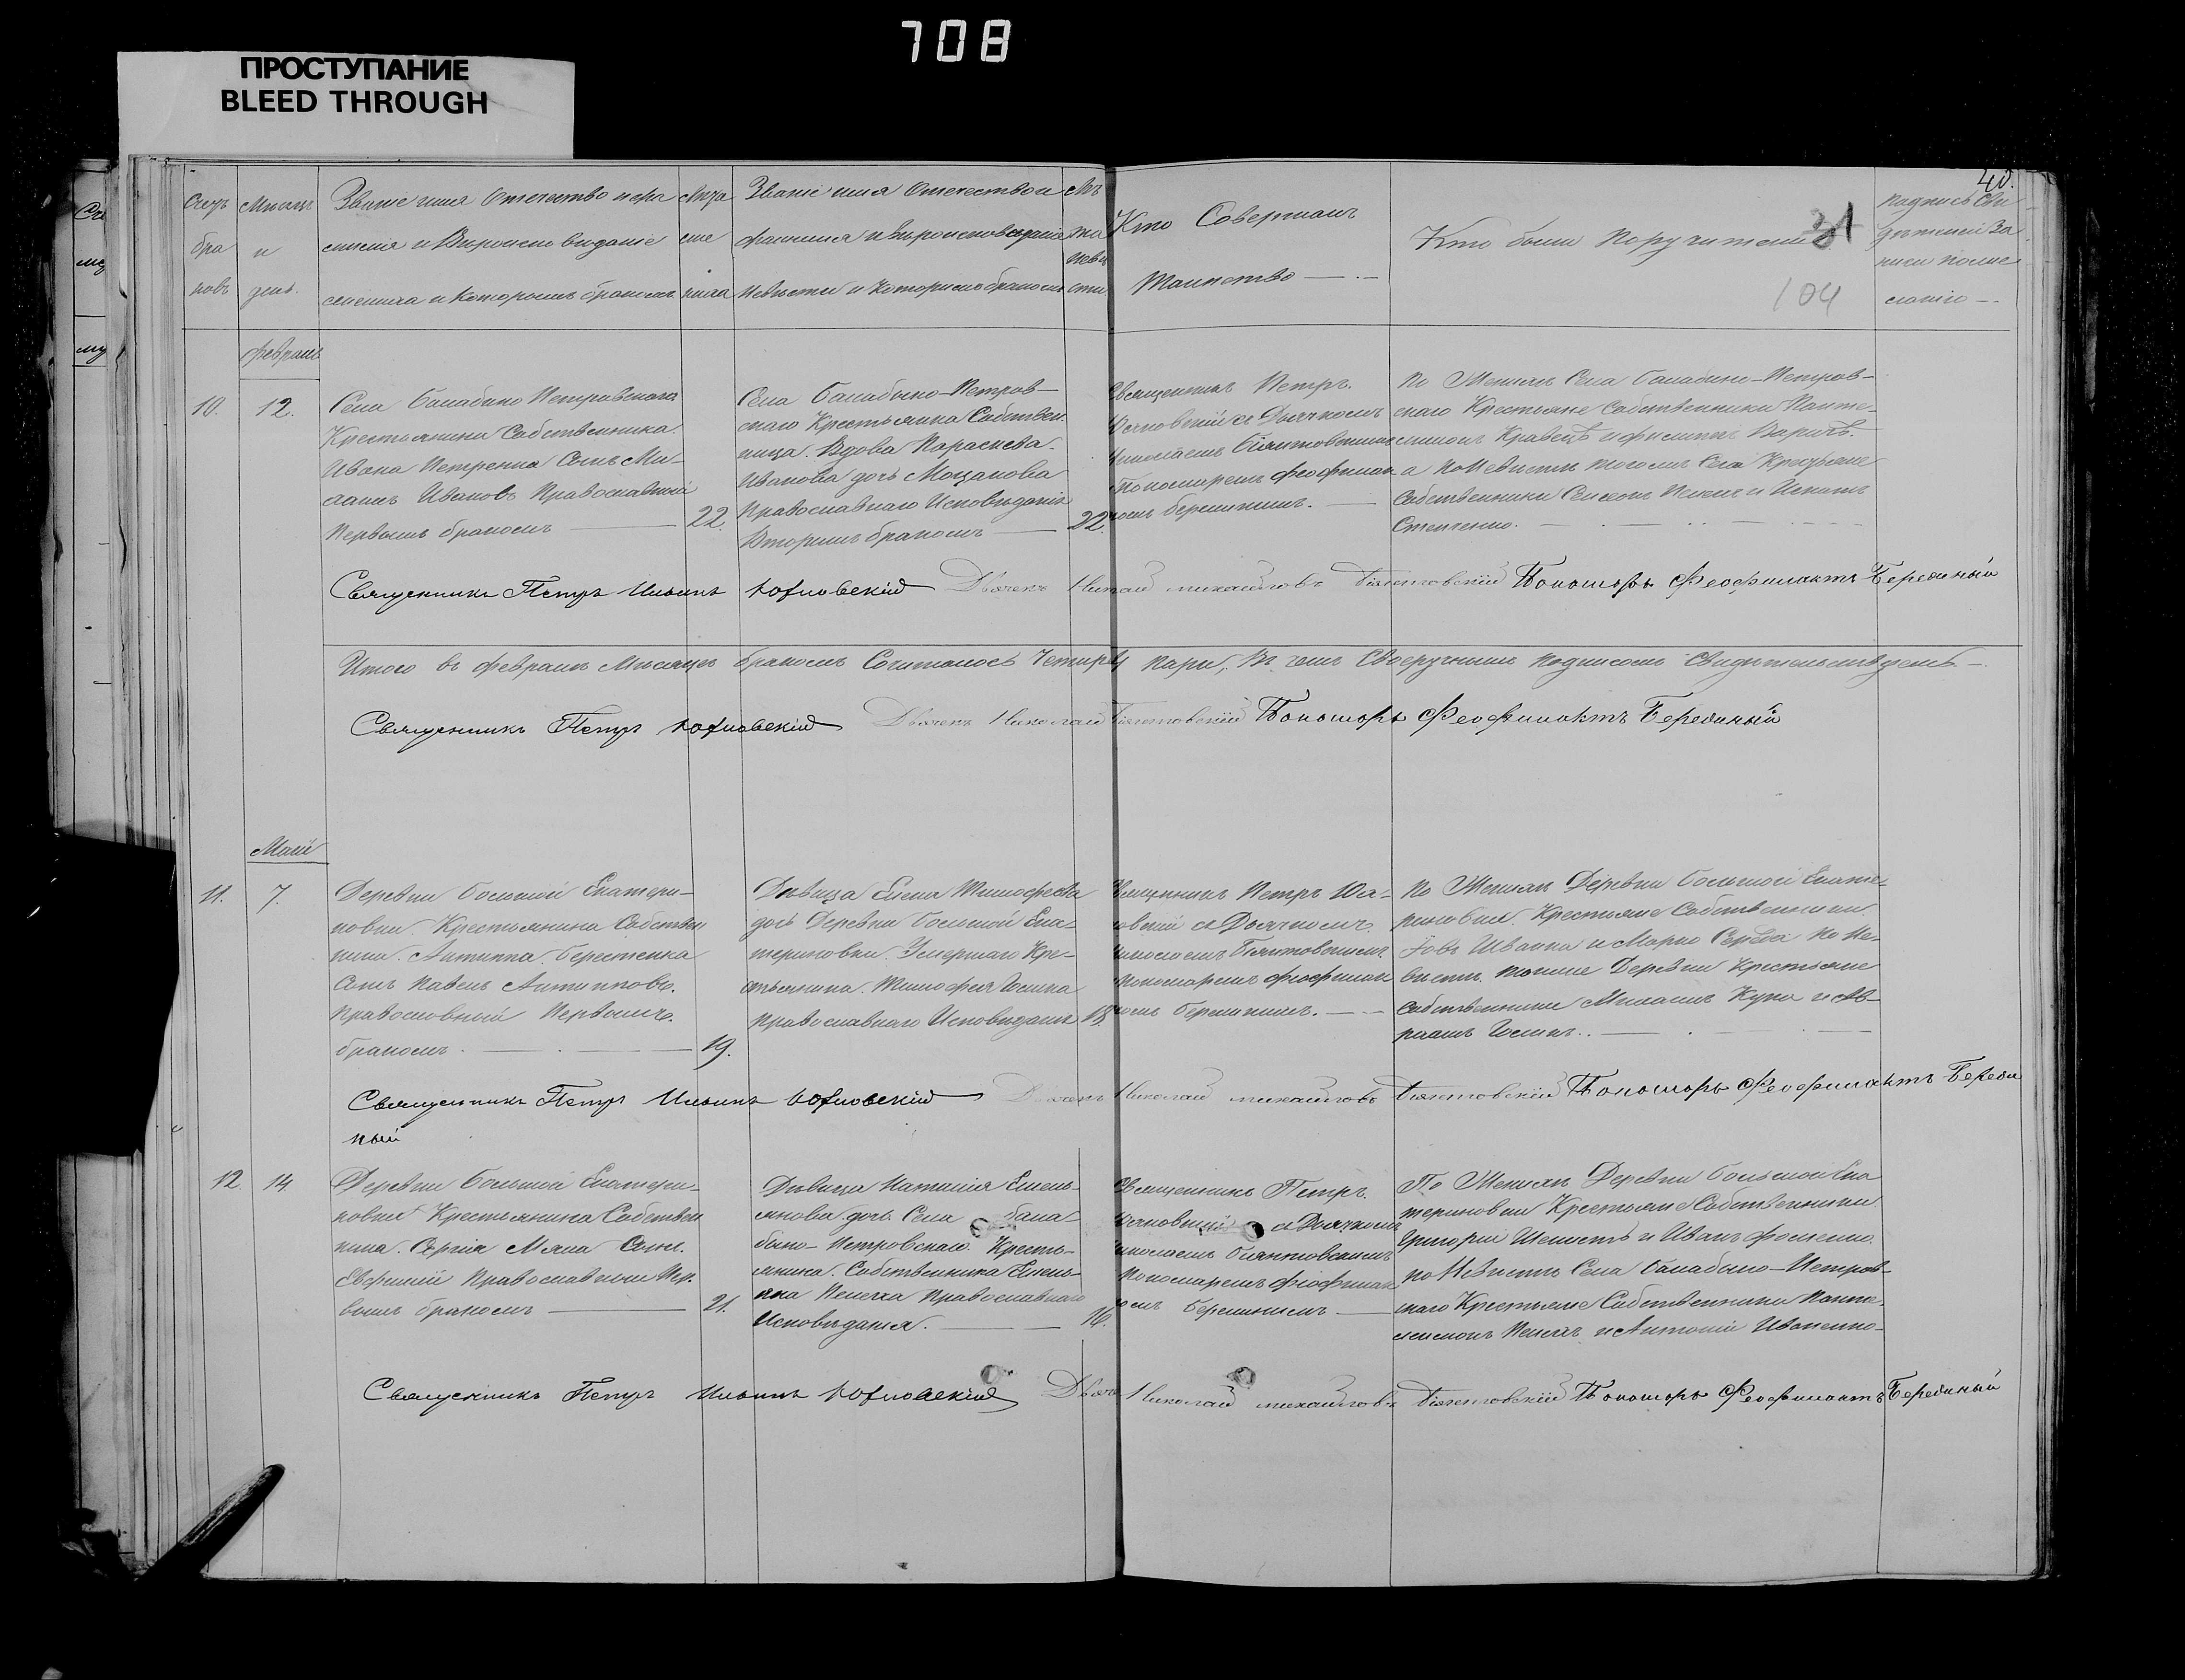 708
ПРОСТУПАНИЕ
BLEED THROUGH
40.
31
104
Счетъ
бра
ковъ
Мѣсяцъ
и
день.
Званіе имя Отечество и фа
милія и Вѣроисповѣданіе
жениха и Которымъ бракомъ
Лѣта
же
ниха
Званіе имя Отечество и
фамилія и Вѣроисповѣданіе
Невѣсты и Которымъ бракомъ
Лѣ
та
невѣ
сты
Кто Совершалъ
Таинство
Кто были Поручители
подпись Сви
дѣтелей За
писи по же
ланію
Февраль
10.
12.
Села Балабино Петровскаго
Крестьянина Собственника.
Ивана Петренка Сынъ Ми-
хаилъ Ивановъ Православный
Первымъ бракомъ
22.
Села Балабыно-Петров-
скаго Крестьянка Собствен.
ница. Вдова Параскева.
Иванова дочь
Православнаго Исповѣданія
Вторымъ бракомъ
22.
Священникъ Петръ.
Юхновскій съ Дьячкомъ
Николаемъ Біянтовскимъ
Пономаремъ Феофилак
томъ Бережнымъ.
По Женихѣ Села Балабино-Петров-
скаго Крестьяне Собственники Панте-
лимонъ Кравецъ и Филиппъ
а по Невѣстѣ тогожъ Села Крестьяне
Собственники и Игнатъ
Степченко.
Священникъ Петръ Ильинъ Юхновскій Дьячекъ Николай Михайловъ Біянтовскій Пономарь Феофилактъ Бережный
Итого въ Февралѣ Мѣсяцѣ бракомъ Сочиталось Четыре пары, Въ чемъ Своеручнымъ подписомъ Свидѣтельствуемъ
Священникъ Петръ Юхновскій Дьячекъ Николай Біянтовскій Пономарь Феофилактъ Бережный
Маій
11.
7.
Деревни Большой Екатери-
новки Крестьянина Собствен
ника. Антиппа. Берестенка
Сынъ Павелъ Антипповъ.
Православный Первымъ.
бракомъ.
19.
Дѣвица Елена Тимофеева
дочь Деревни Большой Ека-
териновки. Умершаго Кре-
стьянина. Тимофея
Православнаго Исповѣданія
18.
Священникъ Петръ Юх-
новскій съ Дьячкомъ.
Николаемъ Біянтовскимъ
Пономаремъ Феофилак
томъ Бережнымъ.
По Женихѣ Деревни Большой Екате-
риновки. Крестьяне Собственники
Іовъ и Марко Серѣда По Не-
вѣстѣ. тойже Деревни Крестьяне
Собственники Михаилъ Купа и Ав-
раамъ
Священникъ Петръ Ильинъ Юхновскій Дьячекъ Николай Михайловъ Біянтовскій Пономарь Феофилактъ Береж
ный
12.
14.
Деревни Большой Екатери-
новки Крестьянина Собствен
ника. Сергія Сынъ.
Евфимій Православный Пер.
вымъ бракомъ
21.
Дѣвица Наталія Емель-
янова дочь Села бала-
быно-Петровскаго Кресть-
янина. Собственника Емель-
яна Православнаго
Исповѣданія.
16.
Священникъ Петръ.
Юхновскій съ Дьячкомъ
Николаемъ Біянтовскимъ
Пономаремъ Феофилак
томъ Бережнымъ
По Женихѣ Деревни Большой Ека
териновки Крестьяне Собственники
Григорій и Иванъ Фоменко.
по Невѣстѣ Села Балабыно-Петров-
скаго Крестьяне Собственники Панте-
лимонъ и Антоній Иваненко-
Священникъ Петръ Ильинъ Юхновскій Дьячекъ Николай Михайловъ Біянтовскій Пономарь Феофилактъ Бережный